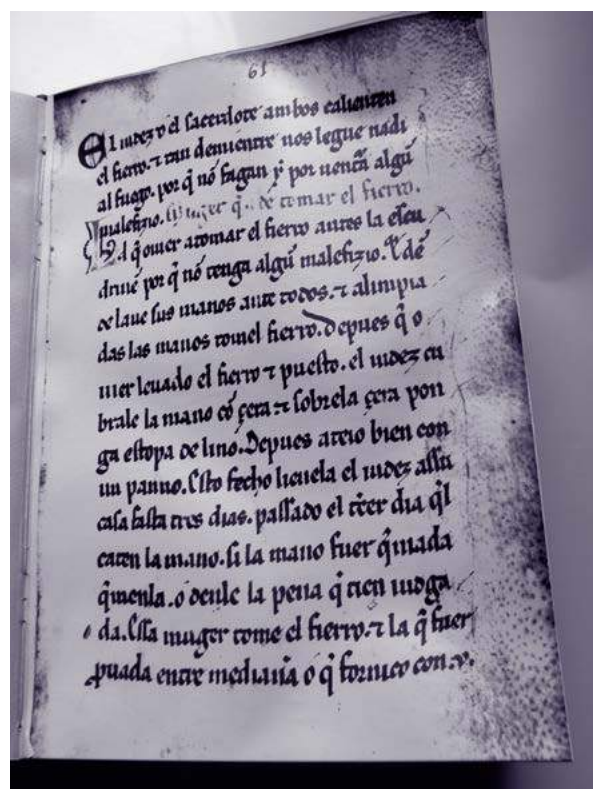 61
El iudez ⁊ el sacerdote ambos calienten
el fierro. ⁊ tan demientre nos legue nadi
al fuego. por q̄ nō fagan ȳ por uentā algū
malefizio. muger q̄ de tomar el fierro.
el q̄ ouier atomar el fierro antes la escu
drinē por q̄ nō tenga algū malefizio.
de laue sus manos ante todos. ⁊ alimpia
das las manos tomel fierro. Depues q̄ o
uier leuado el fierro ⁊ puesto. el iudez cu
brale la mano cō çera ⁊ sobrela çera pon
ga estopa de lino. Depues ateio bien con
un panno. Esto fecho lieuela el iudez assu
casa fasta tres dias. passado el t̄cer dia q̄l
caten la mano. si la mano fuer q̄mada
q̄menla. o denle la pena q̄ iudga
da. Essa muger tome el fierro. ⁊ la q̄ fuer
ꝓuada entre medianā o q̄ fornico con .v.